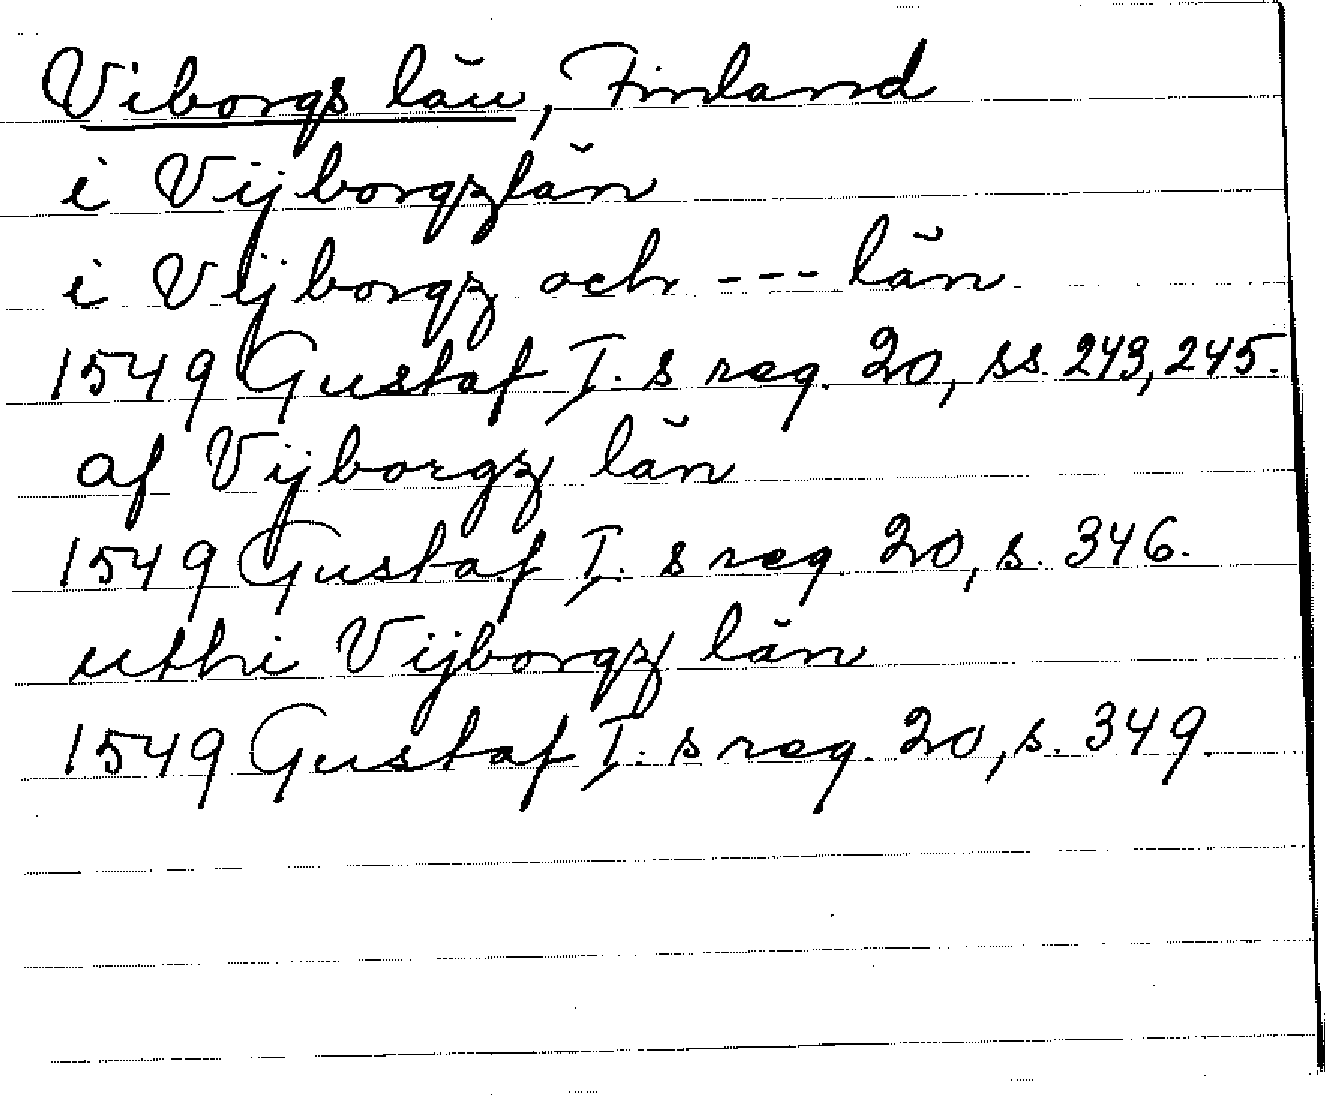 Viborgs län, Finland
i Vijborgzlän
i Vijborgz och --- län
1549 Gustaf I.s reg. 20, ss. 243, 245.
af Vijborgz län
1549 Gustaf I.s reg. 20, s. 346.
uthi Vijborgz län
1549 Gustaf I.s reg. 20, s. 349.